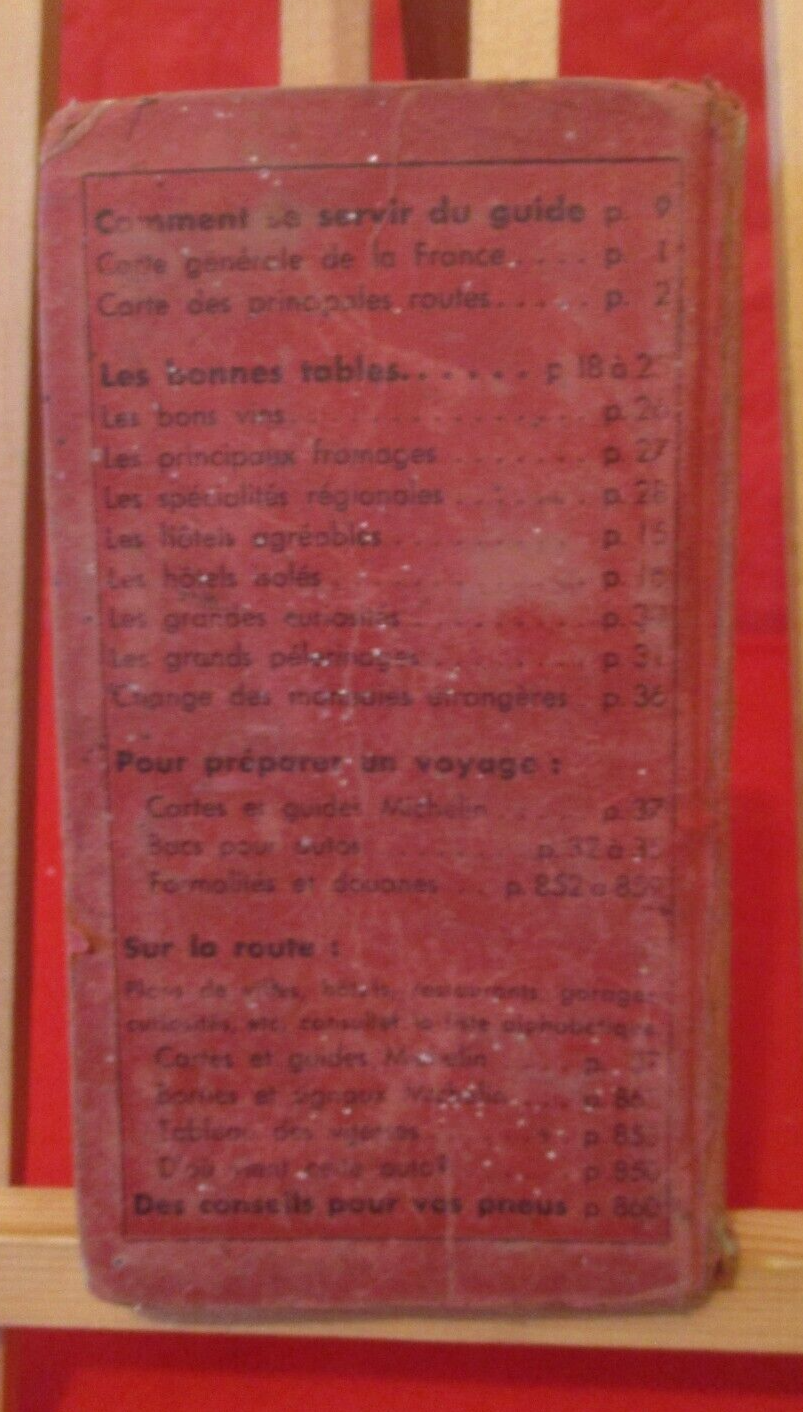 Comment se servir du guide p. 9
Carte générale de la France..... p. 1
Carte des principales routes...... p. 2
Les bonnes tables....... p. 18 à
Les bons vins................ p. 26
Les principaux fromages ........ p. 27
Les spécialités régionales ........ p. 28
Les hôtels agréables........... p. 15
Les hôtels isolés............. p.
Les grandes curiosités.......... p.
Les grands pélerinages.......... p.
Change des monnaies étrangères p. 36
Pour préparer un voyage :
Cartes et guides Michelin ..... p. 37
Bacs pour autos ......... p. 32 à
Formalités et douanes .. p. 852 à 859
Sur la route :
Plans de villes, hôtels, restaurants, garages
curiosités, etc, consulter la liste alphabétique
Cartes et guides Michelin ..... p. 37
Bornes et signaux Michelin.... p.
Tableau des vitesses ....... p.
D'où vient cette auto? ..... p.
Des conseils pour vos pneus p. 860